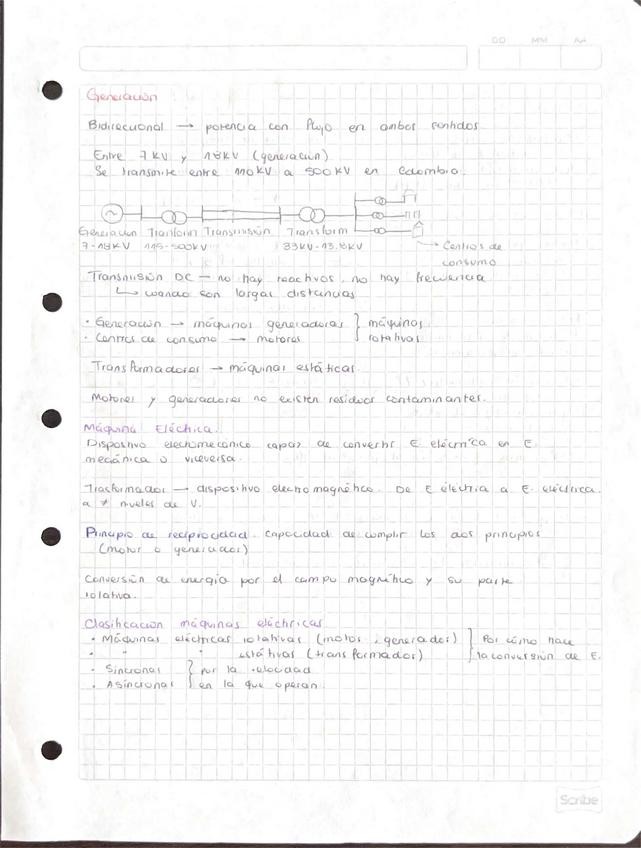 DD MM AA
Generación
Bidireccional → potencia con flujo en ambos sentidos
Entre 7KV y 18KV (generación)
Se transmite entre 110KV a 500KV en Colombia.
Generacion Tranform Transmisión Transform
7-18KV 115-500KV 33KV-13.8KV → Centros de
consumo
Transmisión DC — no hay reactivos, no hay frecuencia
↳ cuando son largas distancias
• Generación → máquinas generadoras } máquinas
• Centros de consumo → motores rotativas
Transformadores → máquinas estáticas.
Motores y generadores no existen residuos contaminantes.
Máquina Eléctrica.
Dispositivo electromecánico capaz de convertir E eléctrica en E.
mecánica o viceversa.
Trasformador → dispositivo electromagnético. De E eléctria a E. eléctrica.
a ≠ niveles de V.
Principio de reciprocidad. capacidad de cumplir los dos principios
(motor o generador)
Conversión de energía por el campo magnético y su parte
rotativa.
Clasificacion máquinas eléctricas
• Máquinas eléctricas rotativas (motor, generador) } Por cómo hace
• " " estátivas (transformador) la conversión de E.
• Síncronas } por la velocidad
• Asíncronas en la que operan.
Scribe